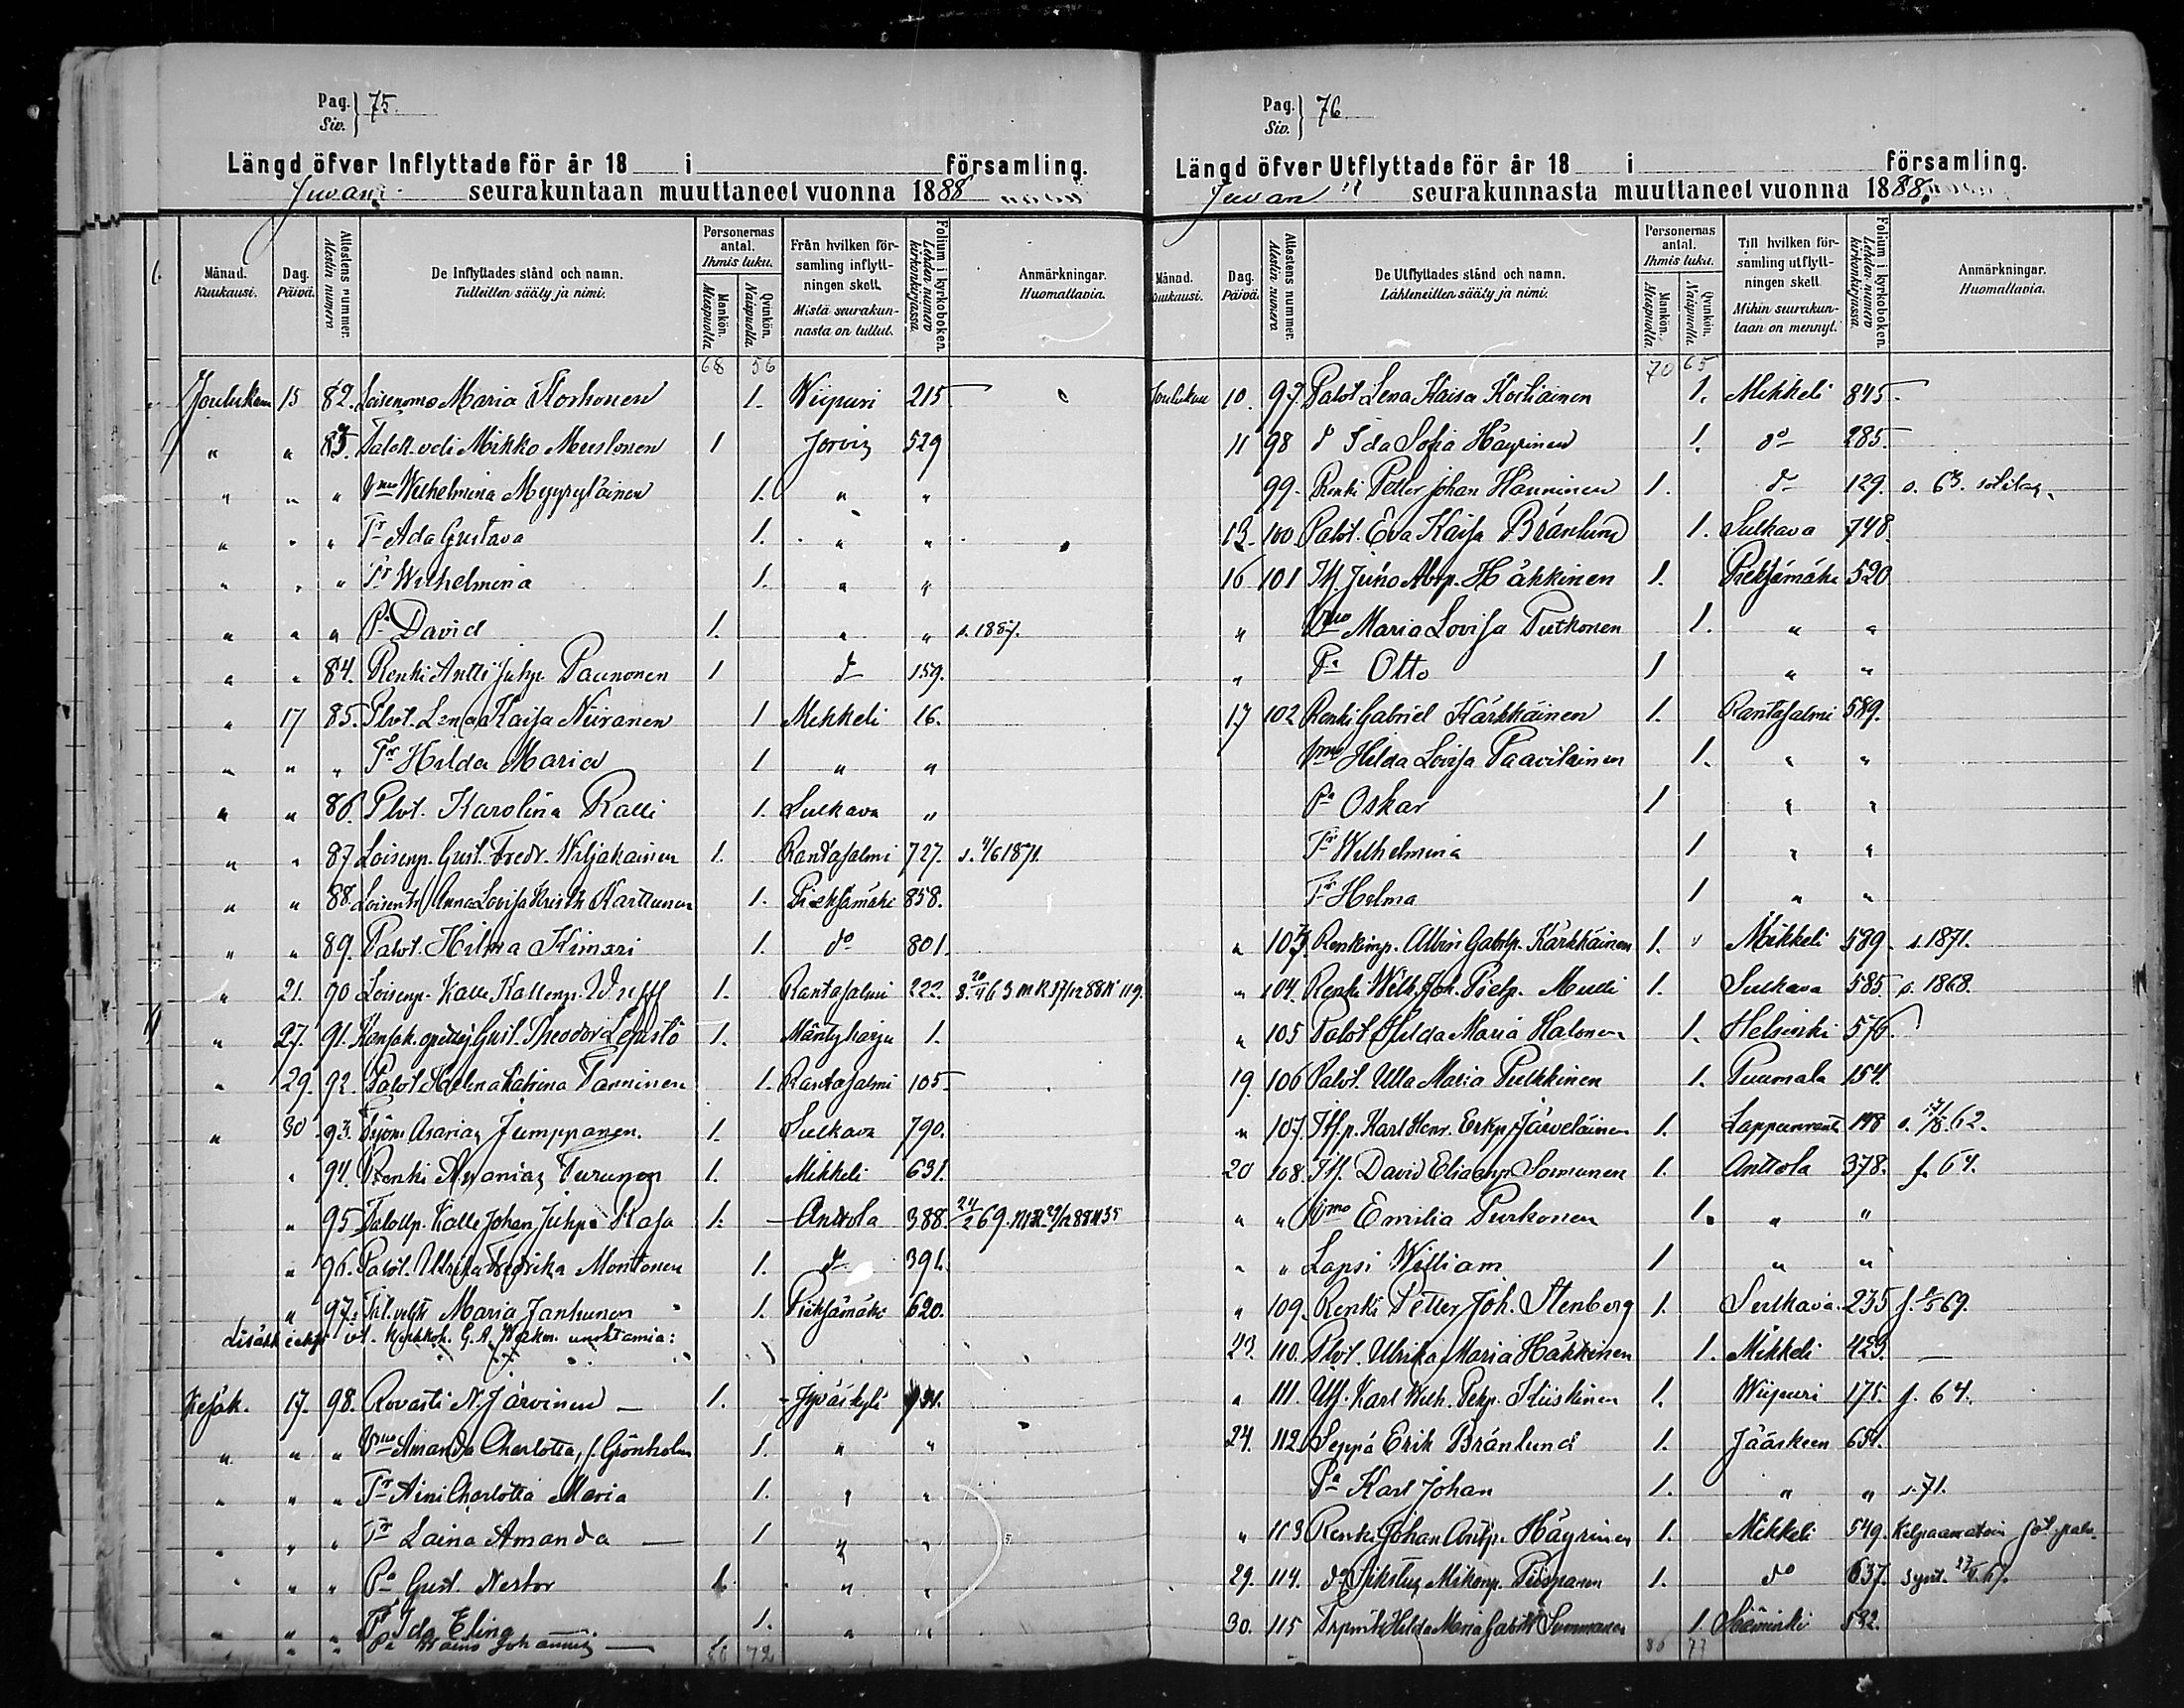 Pag. Siv. } 75.
Längd öfver Inflyttade för år 18 i församling.
Juvan seurakuntaan muuttaneet vuonna 1888
Månad. Kuukausi. Dag. Päivä. Attestens nummer. Atestin numero De Inflyttades stånd och namn. Tulleitten sääty ja nimi. Personernas antal. Ihmis luku. Mankön. Miespuolia. Qvinkön. Naispuolia. Från hvilken församling inflyttningen skett. Mistä seurakunnasta on tullut. Folium i kyrkoboken. Lehden numero kirkonkirjassa. Anmärkningar. Huomattavia.
68 56
Jouluk. 15 82. Loisenvmo Maria Korhonen 1. Wiipuri 215
" " 83. Talok. vdi Mikko Mustonen 1 Jorvis 529
" " " Vmo Wilhelmina Myyryläinen 1. " "
" " " Tr Ada Gustava 1. " "
" " " Tr Wilhelmina 1. " "
" " " Pa David 1. " " s. 1887.
" " 84. Renki Antti Juhp. Paunonen 1 do 159.
" 17 85. Plvt. Lena Kaisa Niiranen 1 Mikkeli 16.
" " " Tr Hilda Maria 1 " "
" " 86. Plvt. Karolina Ralli 1. Sulkava "
" " 87 Loisenp. Gust. Fredr. Wiljakainen 1. Rantasalmi 727. s. 4/6 1871.
" " 88. Loisentr Anna Lovisa Karttunen 1. Pieksämäki 858.
" " 89. Palvt. Hilma Kimari 1. do 801.
" 21. 90 Loisenp. Kalle Kallenp. Wulff 1. Rantasalmi 222.
" 27. 91. Gust. Theodor Lepistö 1. Mäntyharju 1.
" 29. 92. Palvt Helena Katrina Tanninen 1. Rantasalmi 105
" 30. 93. Työm. Asarias Jumppanen. 1. Sulkava 790.
" 94. Renki Ananias Turunen 1. Mikkeli 631.
" 95 Talollp. Kalle Johan Juhp. Kasa 1. Anttola 388. 24/2 69.
" 96. Palvt. Ulrika Fredrika Montonen 1. do 391.
" 97. Maria Janhunen 1. Pieksämäki 620.
Kesäk. 17. 98. Rovasti N. Järvinen 1. Jyväskylä
" " " Vmo Amanda Charlotta, f. Grönholm 1. " "
" " " Tr Aini Charlotta Maria 1. " "
" " " Tr Laina Amanda 1 " "
" " " Pa Gust. Nestor 1. " "
" " " Tr Ida Elina 1. " "
" " " Pa Waino Johannes 1.
80 72
Pag. Siv. } 76.
Längd öfver Utflyttade för år 18 i församling.
Juvan seurakunnasta muuttaneet vuonna 1888.
Månad. Kuukausi. Dag. Päivä. Attestens nummer. Atestin numero De Utflyttades stånd och namn. Lähteneitten sääty ja nimi. Personernas antal. Ihmis luku. Mankön. Miespuolia. Qvinkön. Naispuolia. Till hvilken församling utflyttningen skett. Mihin seurakuntaan on mennyt. Folium i kyrkoboken. Lehden numero kirkonkirjassa. Anmärkningar. Huomattavia.
70 65
Joulukuu 10. 97. Palvt Lena Kaisa Kostiainen 1. Mikkeli 845
11 98 do Ida Sofia Häyrinen 1. do 285
99. Renki Petter Johan Hänninen 1. do 129. s. 63.
13. 100. Palvt. Eva Kaisa Bränlund 1. Sulkava 748.
16 101 Itf. Juho Häkkinen 1. Pieksämäki 520
" Vmo Maria Lovisa Putkonen 1. " "
" Pa Otto 1 " "
17 102 Renki Gabriel Kärkkäinen 1. Rantasalmi 589.
Vmo Hilda Lovisa Paavilainen 1. " "
Pa Oskar 1 " "
Tr Wilhelmina 1 " "
Tr Helma 1 " "
" 103. Renkinp. Albin Gabrp. Kärkkäinen 1. Mikkeli 589 s. 1871.
" 104. Renki Wilh. Joh. Mulli 1. Sulkava 585. s. 1868.
" 105 Palvt Hilda Maria Halonen 1. Helsinki 576
19. 106 Palvt. Ulla Maria Pulkkinen 1. Puumala 154.
" 107. Itf. p. Karl Henr. Erkp. Järveläinen 1. Lappeenranta 148
20 108. Itf. David Eliaanp. Sormunen 1. Anttola 378. f. 64.
" " Vmo Emilia Purkonen 1. " "
" " Lapsi William 1 " "
" 109. Renki Petter Joh. Stenberg 1. Sulkava 235
23. 110. Plvt. Ulrika Maria Häkkinen 1. Mikkeli 423.
" 111. Itf. Karl Wilh. Pekp. Kiiskinen 1. Wiipuri 175. f. 64.
24. 112. Seppä Erik Bränlund 1. Jääskeen 651.
Pa Karl Johan 1. " " s. 71.
" 113 Renki Johan Antp. Häyrinen 1. Mikkeli 549.
29. 114. do Sikstus Mikonp. Piispanen 1. do 637.
30. 115 Hilda Maria Summanen 1. Sääminki 532.
86 77